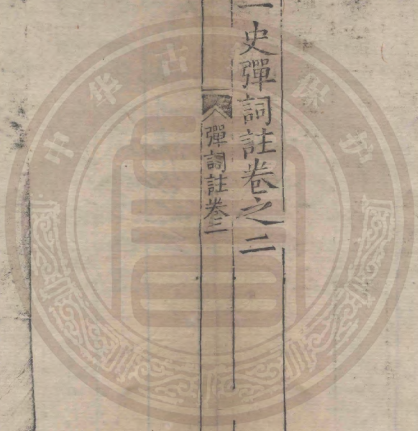 一史彈詞註卷之二
彈詞註卷二
中华古